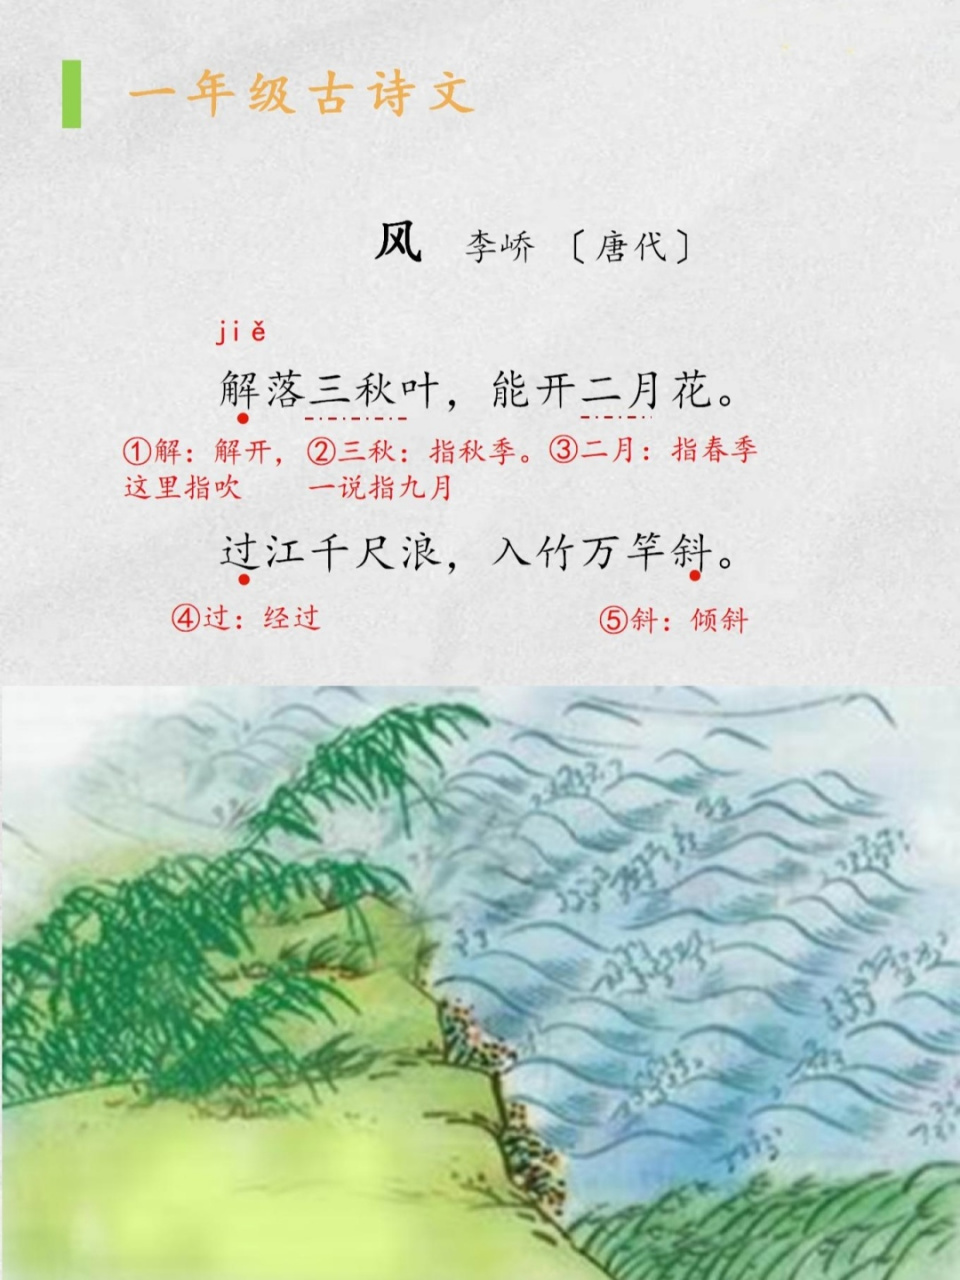 一年级古诗文
风 李峤 〔唐代〕
jiě
解落三秋叶，能开二月花。
①解：解开， ②三秋：指秋季。 ③二月：指春季
这里指吹 一说指九月
过江千尺浪，入竹万竿斜。
④过：经过 ⑤斜：倾斜